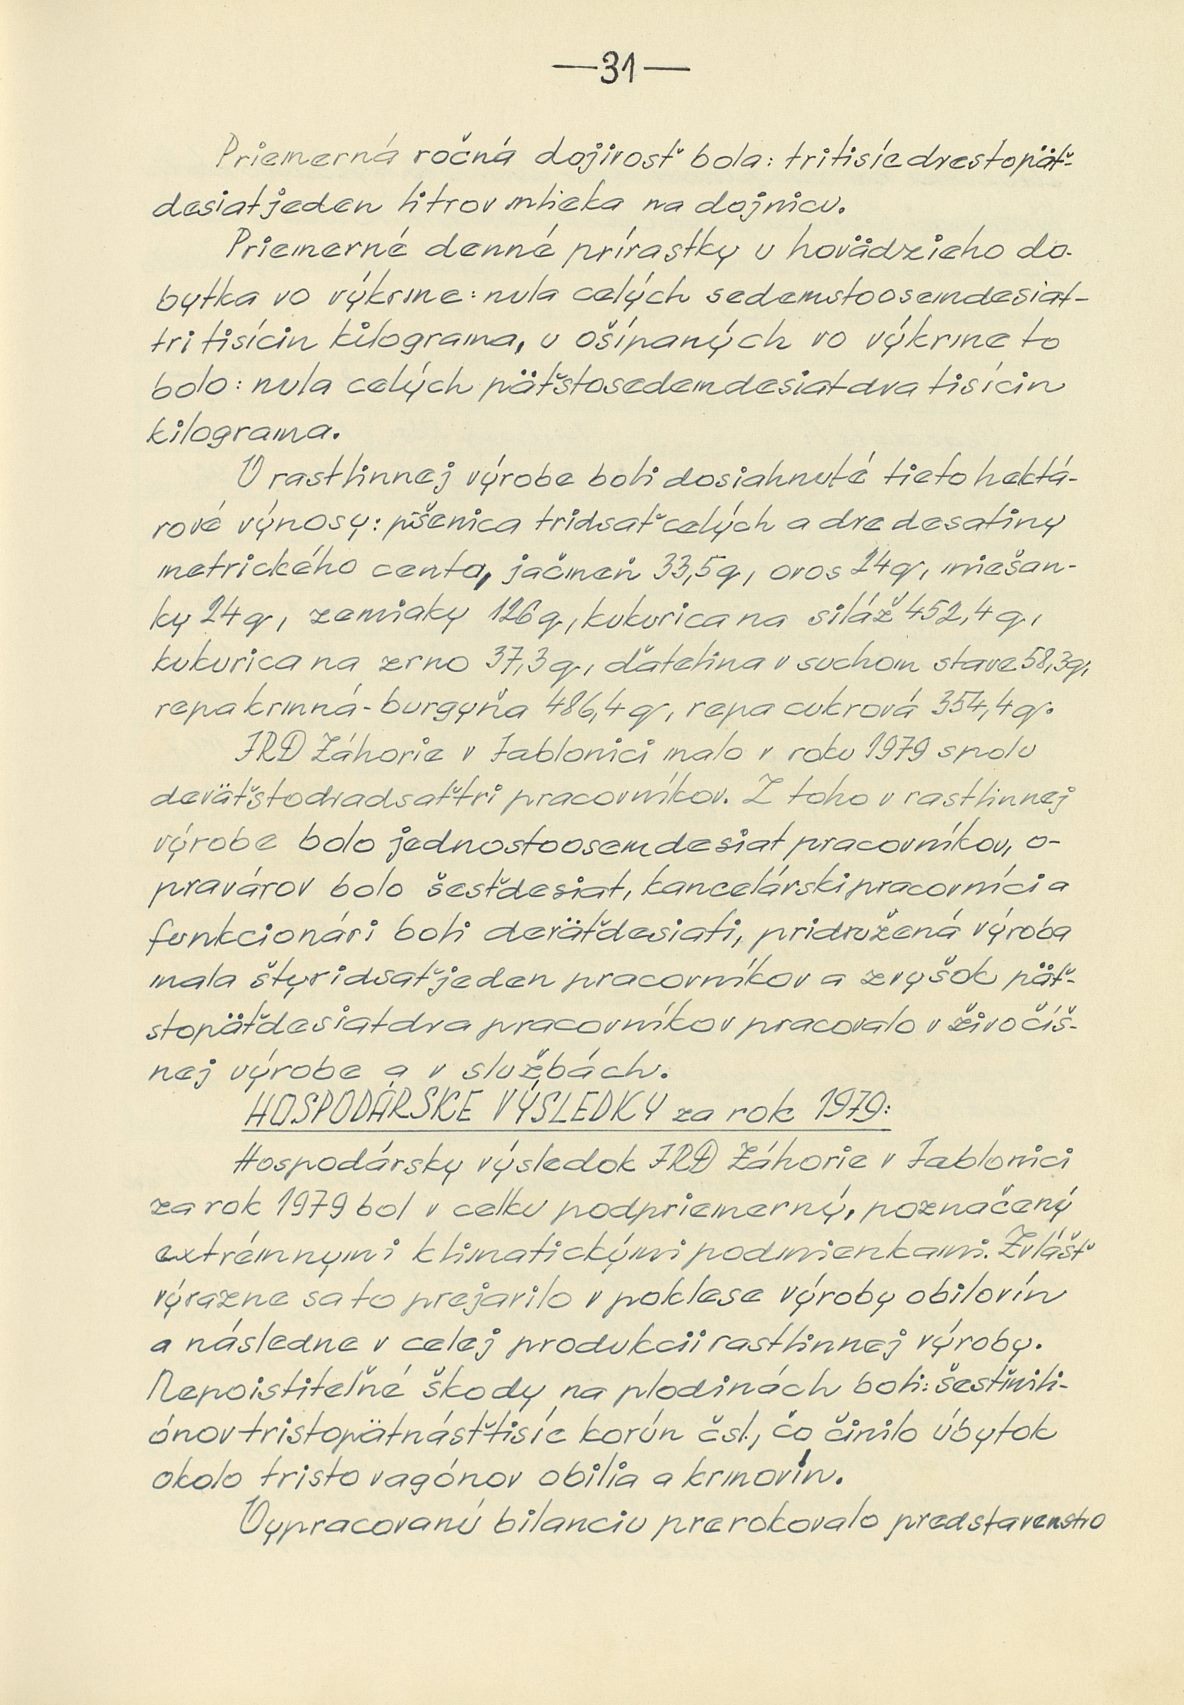 —31—
Priemerná ročná dojivosť bola: tritisícdvestopäť-
desiatjeden litrov mlieka na dojnicu.
Priemerné denné prírastky u hovädzieho do-
bytka vo výkrme: nula celých sedemstoosemdesiat-
tri tisícin kilograma, u ošípaných vo výkrme to
bolo: nula celých päťstosedemdesiatdva tisícin
kilograma.
V rastlinnej výrobe boli dosiahnuté tieto hektá-
rové výnosy: pšenica tridsať celých a dve desatiny
metrického centa, jačmeň 33,5 q, ovos 24 q, miešan-
ky 24 q, zemiaky 126 q, kukurica na siláž 452,4 q,
kukurica na zrno 37,3 q, ďatelina v suchom stave 58,3q,
repa krmná - burgyňa 486,4 q, repa cukrová 354,4 q.
JRD Záhorie v Jablonici malo v roku 1979 spolu
deväťstodvadsaťtri pracovníkov. Z toho v rastlinnej
výrobe bolo jednostoosemdesiat pracovníkov, o-
pravárov bolo šesťdesiat, kancelárski pracovníci a
funkcionári boli deväťdesiati, pridružená výroba
mala štyridsaťjeden pracovníkov a zvyšok päť-
stopäťdesiatdva pracovníkov pracovalo v živočíš-
nej výrobe a v službách.
HOSPODÁRSKE VÝSLEDKY za rok 1979:
Hospodársky výsledok JRD Záhorie v Jablonici
za rok 1979 bol v celku podpriemerný, poznačený
extrémnymi klimatickými podmienkami. Zvlášť
výrazne sa to prejavilo v poklese výroby obilovín
a následne v celej produkcii rastlinnej výroby.
Nepoistiteľné škody na plodinách boli: šesťmili-
ónovtristopätnásťtisíc korún čsl., čo činilo úbytok
okolo tristo vagónov obilia a krmovín.
Vypracovanú bilanciu prerokovalo predstavenstvo